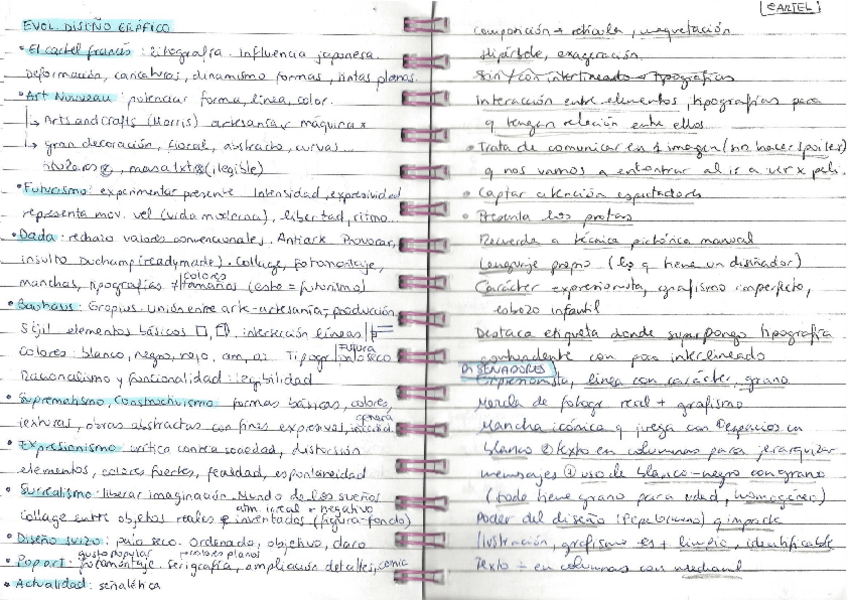 EVOL. DISEÑO GRÁFICO
• El cartel francés: litografía. Influencia japonesa.
Deformación, caricaturas, dinamismo formas, tintas planas.
• Art Nouveau: potenciar forma, línea, color.
↳ Arts and crafts (Morris) artesanía, máquina x
↳ gran decoración, floral, abstracto, curvas...
masa txt (ilegible)
• Futurismo: experimentar presente. Intensidad, expresividad
representa mov. vel (vida moderna), libertad, ritmo...
• Dada: rechazo valores convencionales. Antiarte. Provocar,
insulto Duchamp (readymade). Collage, fotomontaje,
colores
manchas, tipografías ≠ tamaños (esto = futurismo)
• Bauhaus: Gropius. Unión entre arte-artesanía, producción.
elementos básicos intersección líneas
Futura
Colores: blanco, negro, rojo, am, Tipogr palo seco
Racionalismo y funcionalidad: legibilidad
• Suprematismo, Constructivismo: formas básicas, colores,
texturas, obras abstractas con fines expresivos,
• Expresionismo: crítica contra sociedad, distorsión
elementos, colores fuertes, fealdad, espontaneidad
• Surrealismo: liberar imaginación. Mundo de los sueños
atm. irreal + negativo
Collage entre objetos reales e inventados (figura-fondo)
• Diseño suizo: palo seco. Ordenado, objetivo, claro
gusto popular colores planos
• Pop art: fotomontaje. serigrafía, ampliación detalles, comic
• Actualidad: señalética
CARTEL
composición → retícula, maquetación
Hipérbole, exageración
Sin/con interlineado → tipografías
Interacción entre elementos, tipografías para
q tengan relación entre ellos
• Trata de comunicar en 1 imagen (sin hacer spoiler)
q nos vamos a encontrar al ir a ver x peli.
• Captar atención espectadores
• Presenta los protas
Recuerda a técnica pictórica manual
Lenguaje propio (lo q tiene un diseñador)
Carácter expresionista, grafismo imperfecto,
esbozo infantil
Destaca etiqueta donde superpongo tipografía
contundente con poco interlineado
DISEÑADORES
Expresionista, línea con carácter, grano
Mezcla de fotogr real + grafismo
Mancha icónica q juega con ① espacios en
blanco ② texto en columnas para jerarquizar
mensajes ③ uso de blanco-negro con grano
(todo tiene grano para unidad, homogéneo)
Poder del diseño q impacte
Ilustración, grafismo es + limpio, identificable
Texto en columnas con